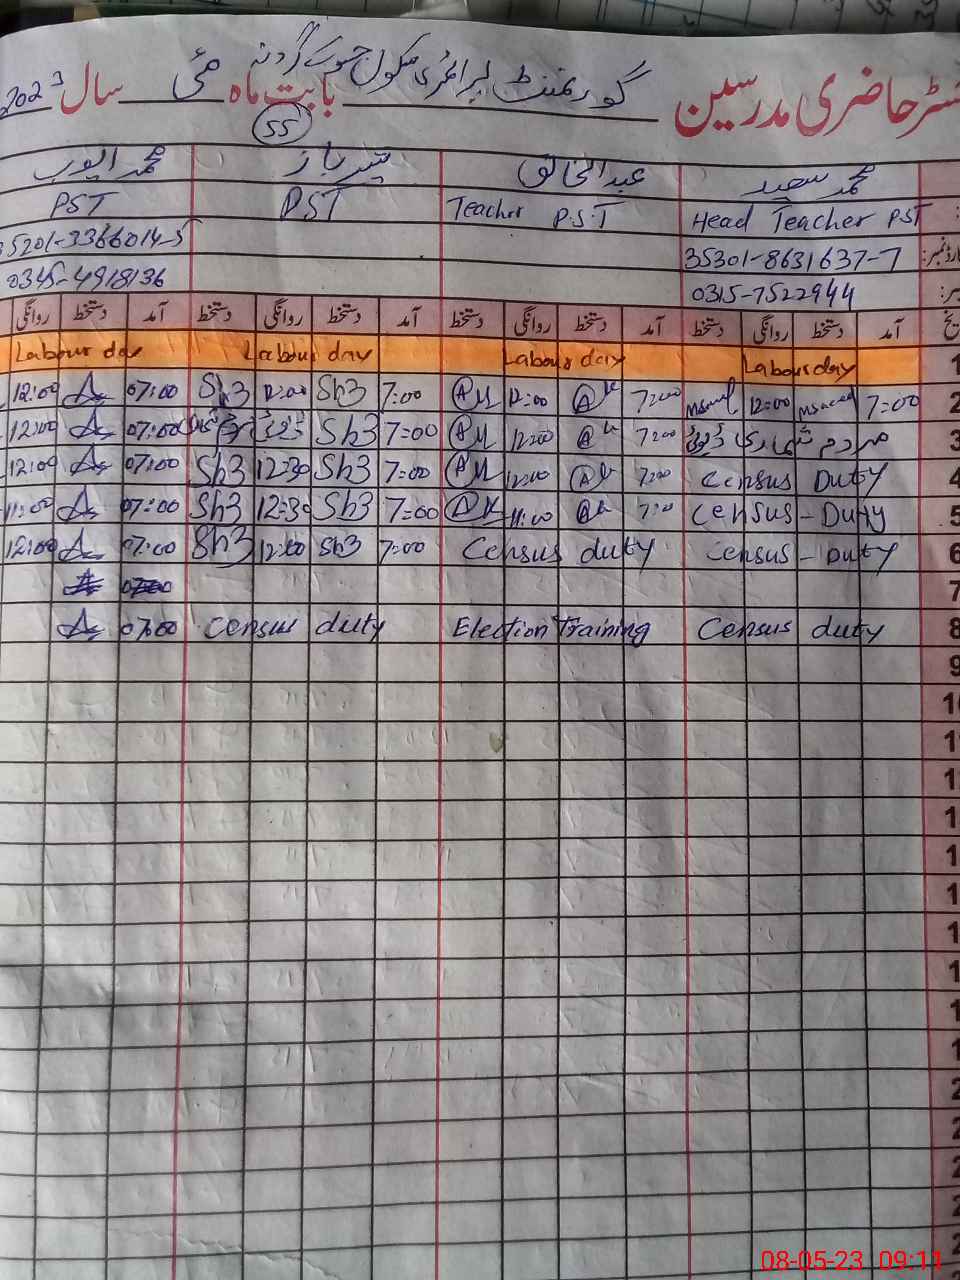 رجسٹر حاضری مدرسین گورنمنٹ پرائمری سکول بابت ماہ مئی سال 2023
55
محمد سعید عبدالخالق شیر باز محمد ایوب
Head Teacher PST Teacher P.S.T PST PST
35301-8631637-7 35201-3366014-5
0315-7522944 0345-4918136
آمد دستخط روانگی دستخط آمد دستخط روانگی دستخط آمد دستخط روانگی دستخط آمد دستخط روانگی
1 Labour day Labour day Labour day Labour day
2 7=00 12=00 7:00 12:00 7:00 Sh3 12:00 Sh3 07:00 12:00
3 مردم شماری ڈیوٹی 7:00 12:00 7=00 Sh3 07:00 12:00
4 Census Duty 7:00 12:00 7=00 Sh3 12:30 Sh3 07:00 12:00
5 Census - Duty 7:00 11:00 7=00 Sh3 12:30 Sh3 07:00 11:00
6 Census - Duty Census duty 7=00 Sh3 12:00 Sh3 07:00 12:00
7
8 Census duty Election Training Census duty 07:00
9
08-05-23 09:11